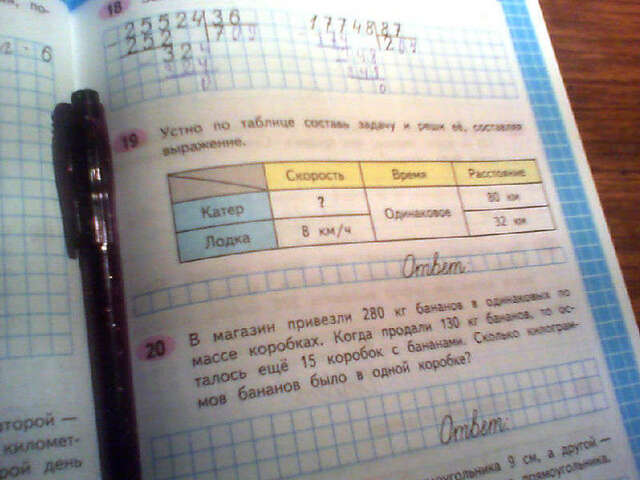 18
25524 36
252 709
324
324
0
17748 87
174 204
348
348
0
2 · 6
19 Устно по таблице составь задачу и реши её, составляя
выражение.
Скорость Время Расстояние
Катер ? Одинаковое 80 км
Лодка 8 км/ч 32 км
Ответ:
20 В магазин привезли 280 кг бананов в одинаковых по
массе коробках. Когда продали 130 кг бананов, то ос-
талось ещё 15 коробок с бананами. Сколько килограм-
мов бананов было в одной коробке?
Ответ:
второй —
километ-
рой день
моугольника 9 см, а другой —
прямоугольника.